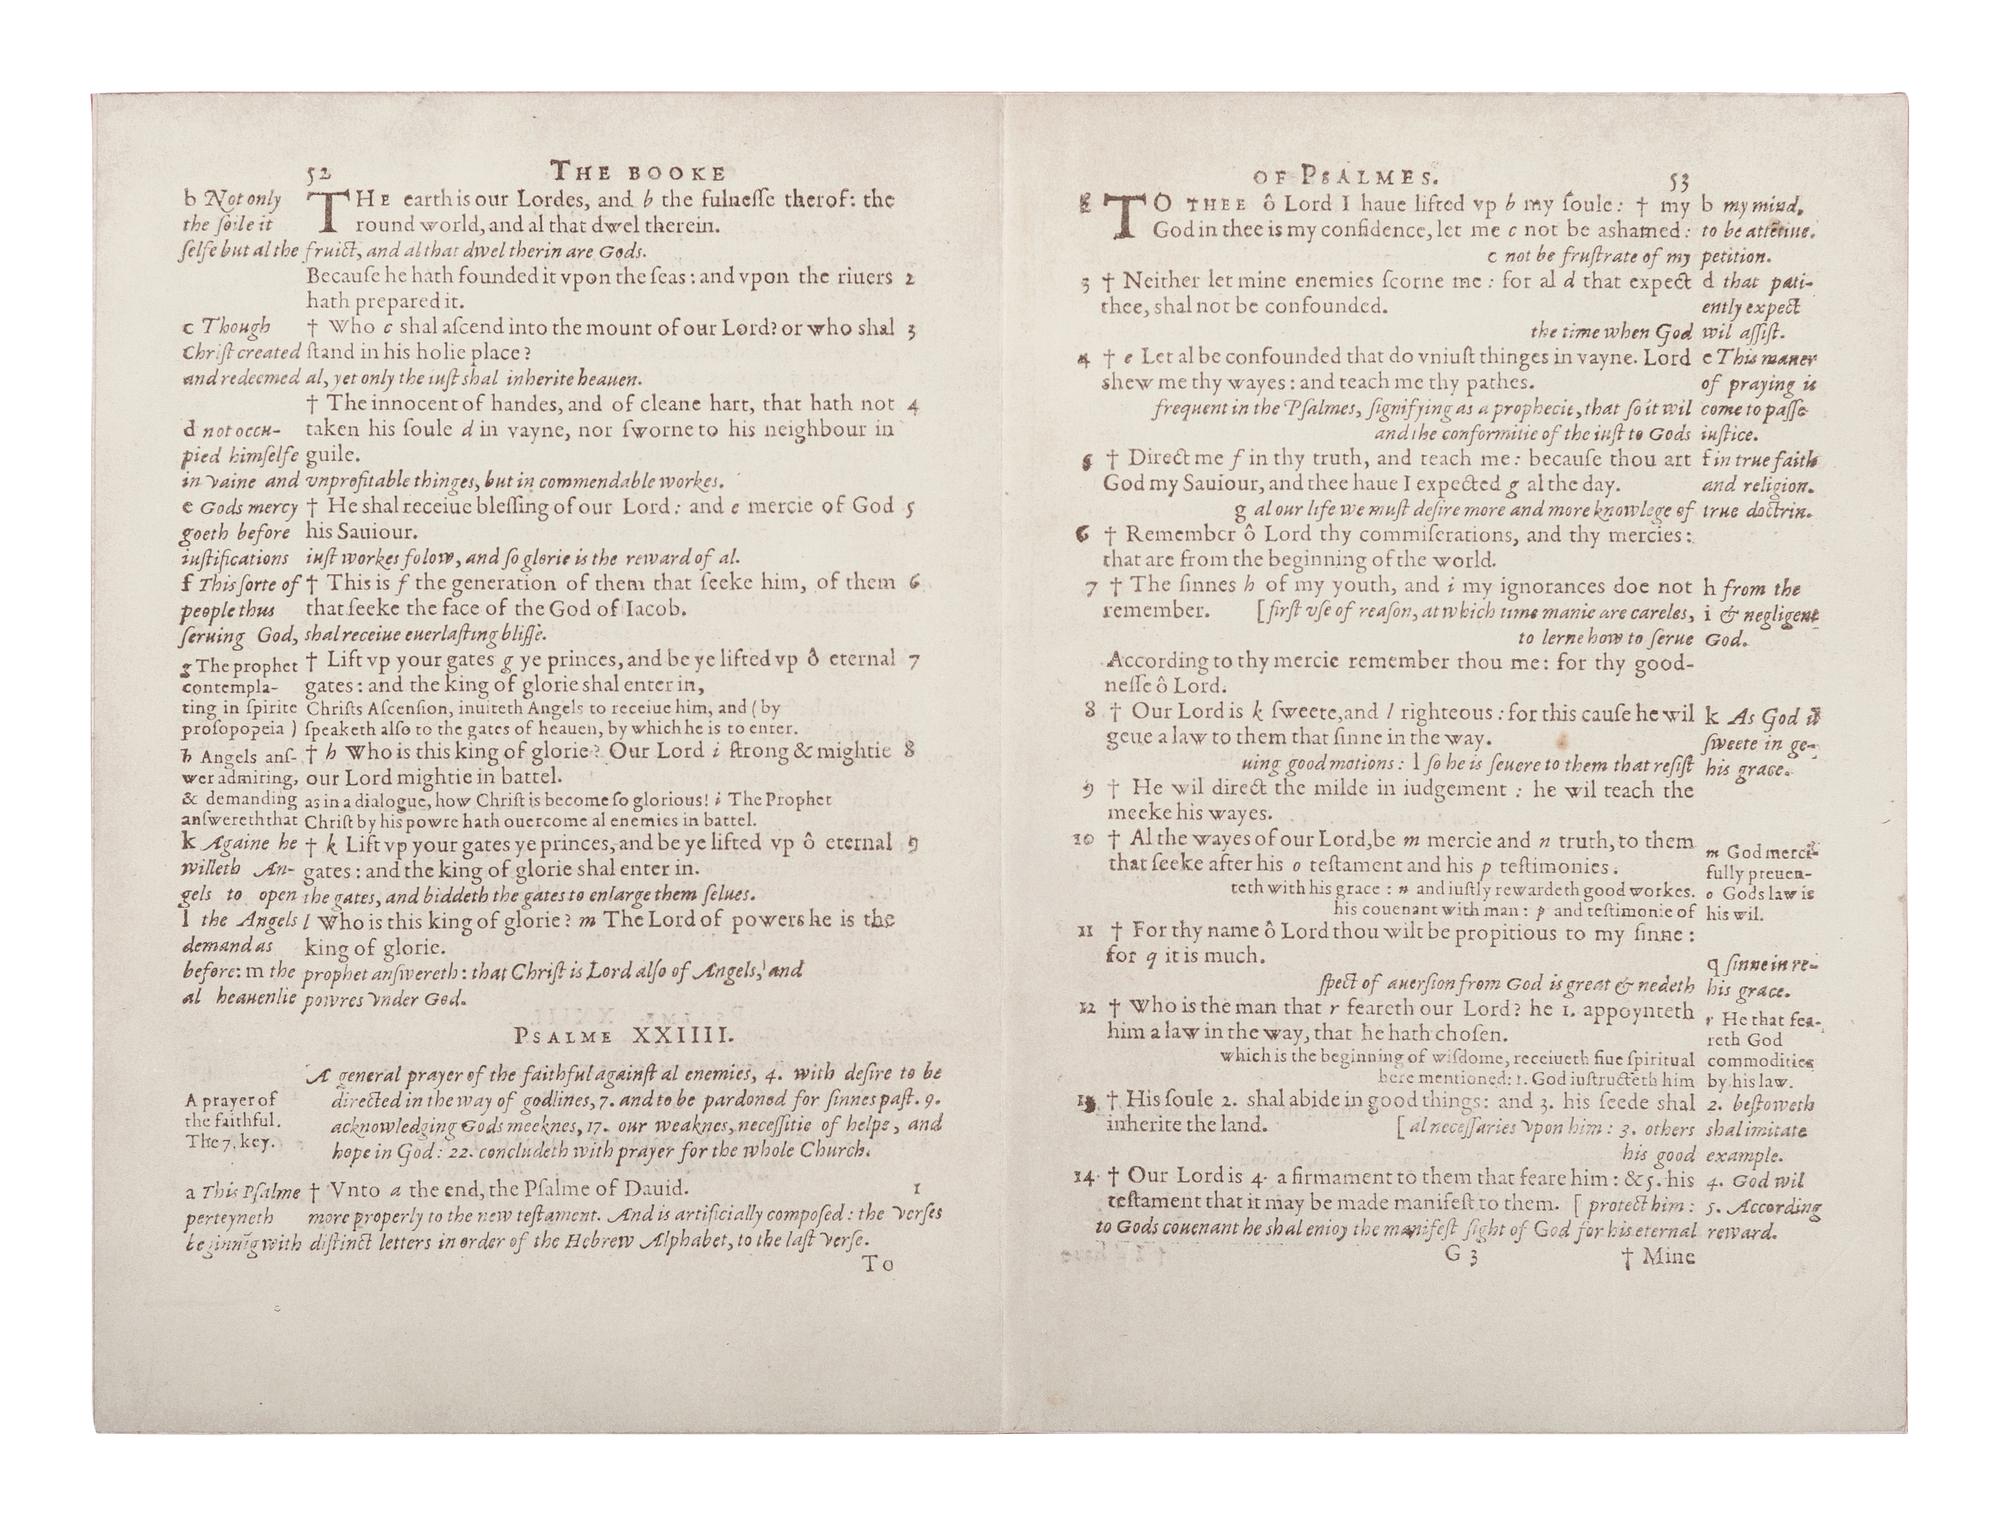 52 THE BOOKE
b Not only THE earth is our Lordes, and b the fulnesse therof: the
the ſoile it round world, and al that dwel therein.
ſelfe but al the fruict, and al that dwel therin are Gods.
Becauſe he hath founded it vpon the ſeas: and vpon the riuers 2
hath prepared it.
c Though † Who c shal aſcend into the mount of our Lord? or who shal 3
Chriſt created ſtand in his holie place?
and redeemed al, yet only the iuſt shal inherite heauen.
† The innocent of handes, and of cleane hart, that hath not 4
d not occu- taken his ſoule d in vayne, nor ſworne to his neighbour in
pied himſelfe guile.
in vaine and vnprofitable thinges, but in commendable workes.
e Gods mercy † He shal receiue bleſſing of our Lord: and e mercie of God 5
goeth before his Sauiour.
iuſtifications iuſt workes folow, and ſo glorie is the reward of al.
f This ſorte of † This is f the generation of them that ſeeke him, of them 6
people thus that ſeeke the face of the God of Iacob.
ſeruing God, shal receiue euerlaſting bliſſe.
g The prophet † Lift vp your gates g ye princes, and be ye lifted vp ô eternal 7
contempla- gates: and the king of glorie shal enter in,
ting in ſpirite Chriſts Aſcenſion, inuiteth Angels to receiue him, and (by
proſopopeia) ſpeaketh alſo to the gates of heauen, by which he is to enter.
h Angels anſ- † h Who is this king of glorie? Our Lord i ſtrong & mightie 8
wer admiring, our Lord mightie in battel.
& demanding as in a dialogue, how Chriſt is become ſo glorious! i The Prophet
anſwereth that Chriſt by his powre hath ouercome al enemies in battel.
k Againe he † k Lift vp your gates ye princes, and be ye lifted vp ô eternal 9
willeth An- gates: and the king of glorie shal enter in.
gels to open the gates, and biddeth the gates to enlarge them ſelues.
l the Angels l Who is this king of glorie? m The Lord of powers he is the
demand as king of glorie.
before: m the prophet anſwereth: that Chriſt is Lord alſo of Angels, and
al heauenlie powres vnder God.
PSALME XXIIII.
A general prayer of the faithful againſt al enemies, 4. with deſire to be
A prayer of directed in the way of godlines, 7. and to be pardoned for ſinnes paſt. 9.
the faithful. acknowledging Gods meeknes, 17. our weaknes, neceſſitie of helpe, and
The 7. key. hope in God: 22. concludeth with prayer for the whole Church.
a This Pſalme † Vnto a the end, the Pſalme of Dauid. 1
perteyneth more properly to the new teſtament. And is artificially compoſed: the verſes
beginnīg with diſtinct letters in order of the Hebrew Alphabet, to the laſt verſe.
To
OF PSALMES. 53
TO THEE ô Lord I haue lifted vp b my ſoule: † my b my mind,
God in thee is my confidence, let me c not be ashamed: to be attētiue.
c not be fruſtrate of my petition.
3 † Neither let mine enemies ſcorne me: for al d that expect d that pati-
thee, shal not be confounded. ently expect
the time when God wil aſſiſt.
4 † e Let al be confounded that do vniuſt thinges in vayne. Lord e This maner
shew me thy wayes: and teach me thy pathes. of praying is
frequent in the Pſalmes, ſignifying as a prophecie, that ſo it wil come to paſſe
and the conformitie of the iuſt to Gods iuſtice.
5 † Direct me f in thy truth, and teach me: becauſe thou art f in true faith
God my Sauiour, and thee haue I expected g al the day. and religion.
g al our life we muſt deſire more and more knowlege of true doctrin.
6 † Remember ô Lord thy commiſerations, and thy mercies:
that are from the beginning of the world.
7 † The ſinnes h of my youth, and i my ignorances doe not h from the
remember. [firſt vſe of reaſon, at which time manie are careles, i & negligent
to lerne how to ſerue God.
According to thy mercie remember thou me: for thy good-
neſſe ô Lord.
8 † Our Lord is k ſweete, and l righteous: for this cauſe he wil k As God is
geue a law to them that ſinne in the way. ſweete in ge-
uing good motions: l ſo he is ſeuere to them that reſiſt his grace.
9 † He wil direct the milde in iudgement: he wil teach the
meeke his wayes.
10 † Al the wayes of our Lord, be m mercie and n truth, to them
that ſeeke after his o teſtament and his p teſtimonies. m God merci-
fully preuen-
teth with his grace: n and iuſtly rewardeth good workes. o Gods law is
his couenant with man: p and teſtimonie of his wil.
11 † For thy name ô Lord thou wilt be propitious to my ſinne:
for q it is much. q ſinne in re-
ſpect of auerſion from God is great & nedeth his grace.
12 † Who is the man that r feareth our Lord? he 1. appoynteth r He that fea-
him a law in the way, that he hath choſen. reth God
which is the beginning of wiſdome, receiueth fiue ſpiritual commodities
here mentioned: 1. God inſtructeth him by his law.
13 † His ſoule 2. shal abide in good things: and 3. his ſeede shal 2. beſtoweth
inherite the land. [al neceſſaries vpon him: 3. others shal imitate
his good example.
14 † Our Lord is 4. a firmament to them that feare him: & 5. his 4. God wil
teſtament that it may be made manifeſt to them. [protect him: 5. According
to Gods couenant he shal enioy the manifeſt ſight of God for his eternal reward.
G 3 † Mine